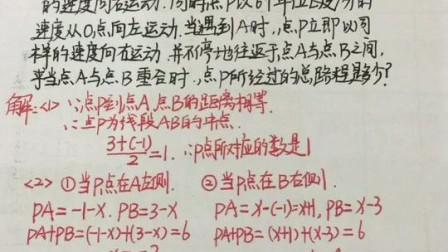 的速度向右运动.同时点P以6个单位长度/分的
速度从O点向左运动.当遇到A时,点P立即以同
样的速度向右运动,并不停地往返于点A与点B之间,
求当点A与点B重合时,点P所经过的总路程是多少?
解:<1> ∵点P到点A、点B的距离相等.
∴点P为线段AB的中点.
3+(-1)/2=1. ∴P点所对应的数是1
<2> ①当P点在A左侧. ②当P点在B右侧.
PA=-1-x. PB=3-x PA=x-(-1)=x+1, PB=x-3
PA+PB=(-1-x)+(3-x)=6 PA+PB=(x+1)+(x-3)=6